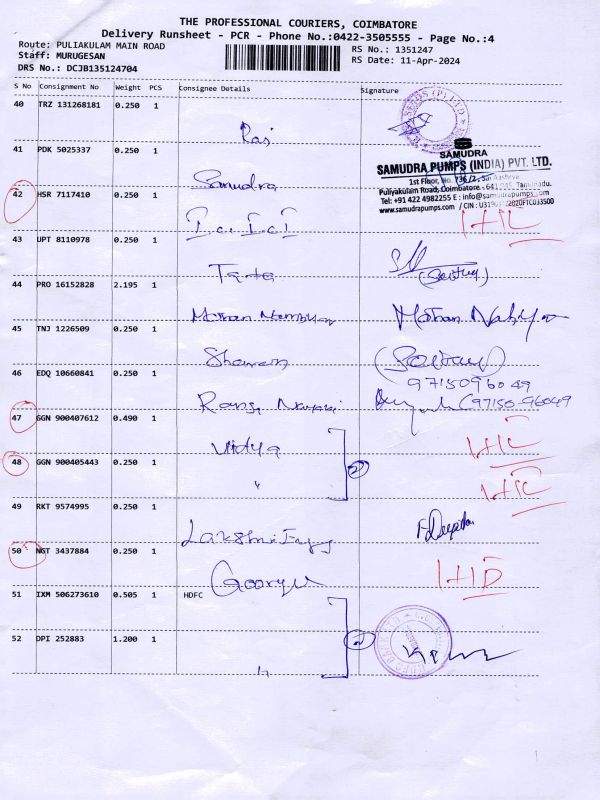 THE PROFESSIONAL COURIERS, COIMBATORE
Delivery Runsheet - PCR - Phone No.:0422-3505555 - Page No.:4
Route: PULIAKULAM MAIN ROAD
Staff: MURUGESAN
DRS No.: DCJB135124704
RS No.: 1351247
RS Date: 11-Apr-2024
S No Consignment No Weight PCS Consignee Details Signature
40 TRZ 131268181 0.250 1
Raj
41 PDK 5025337 0.250 1
Samudra
SAMUDRA
SAMUDRA PUMPS (INDIA) PVT. LTD.
1st Floor, No. 736/2,
Puliyakulam Road, Coimbatore - 641 045, Tamilnadu.
Tel: +91 422 4982255 E : info@samudrapumps.com
www.samudrapumps.com / CIN :
42 HSR 7117410 0.250 1
I.C.I.C.I
43 UPT 8110978 0.250 1
Tata
44 PRO 16152828 2.195 1
Mohan Nambiyar
45 TNJ 1226509 0.250 1
46 EDQ 10660841 0.250 1
9715096049
(97150-96049
47 GGN 900407612 0.490 1
Vidya
48 GGN 900405443 0.250 1
"
2
49 RKT 9574995 0.250 1
50 NGT 3437884 0.250 1
51 IXM 506273610 0.505 1 HDFC
52 DPI 252883 1.200 1
"